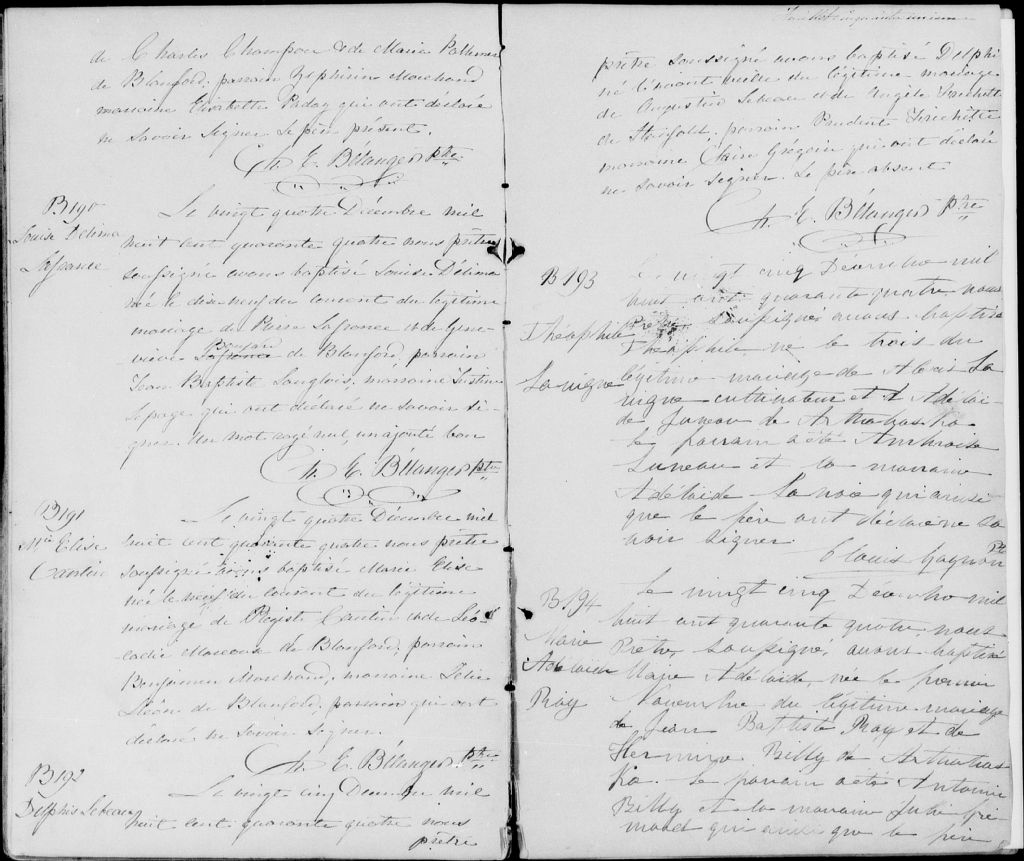 de Charles Champoux & de Marie
de Blanford, parrain Zéphirin Marchand
marraine Charlotte qui ont déclaré
ne savoir signer. Le père présent.
Ch. E. Bélanger Ptre
B190
Louise Délima
Lafrance
Le vingt quatre Décembre mil
huit cent quarante quatre nous prêtre
soussigné avons baptisé Louise Délima
née le dix neuf du courant du légitime
mariage de Pierre Lafrance et de Gene-
viève Lafrance de Blanford, parrain
Jean Baptiste Langlois, marraine Justine
Lepage qui ont déclaré ne savoir si-
gner. Un mot rayé nul, un ajouté bon
Ch. E. Bélanger Ptre
B191
Mie Elise
Cantin
Le vingt quatre Décembre mil
huit cent quarante quatre nous prêtre
soussigné avons baptisé Marie Elise
née le neuf du courant du légitime
mariage de Cantin & de Léo-
cadie de Blanford, parrain
Benjamin Marchand, marraine
de Blanford, parrain qui ont
déclaré ne savoir signer.
Ch. E. Bélanger Ptre
B192
Le vingt cinq Décembre mil
huit cent quarante quatre nous
prêtre
prêtre soussigné avons baptisé Delphi
né du légitime mariage
de Augustin Lebeau et de Angèle
de Stanfold, parrain Prudent
marraine Claire Grégoire qui ont déclaré
ne savoir signer. Le père absent
Ch. E. Bélanger Ptre
B193
Théophile
Lavigne
Le vingt cinq Décembre mil
huit cent quarante quatre nous
Prêtre soussigné avons baptisé
Théophile né le trois du
légitime mariage de Alexis La
vigne cultivateur et d'Adélaï-
de Luneau de Arthabaska
le parrain a été Ambroise
Luneau et la marraine
Adélaide Lavoie qui ainsi
que le père ont déclaré ne sa
voir signer
Clovis Gagnon Ptr
B194
Marie
Adelaide
Roy
Le vingt cinq Décembre mil
huit cent quarante quatre nous
Prêtre soussigné avons baptisé
Marie Adélaide, née le premier
Novembre du légitime mariage
de Jean Baptiste Roy et de
Hermine Billy de Arthabas
ka le parrain a été Antoine
Billy et la marraine Julie
qui ainsi que le père